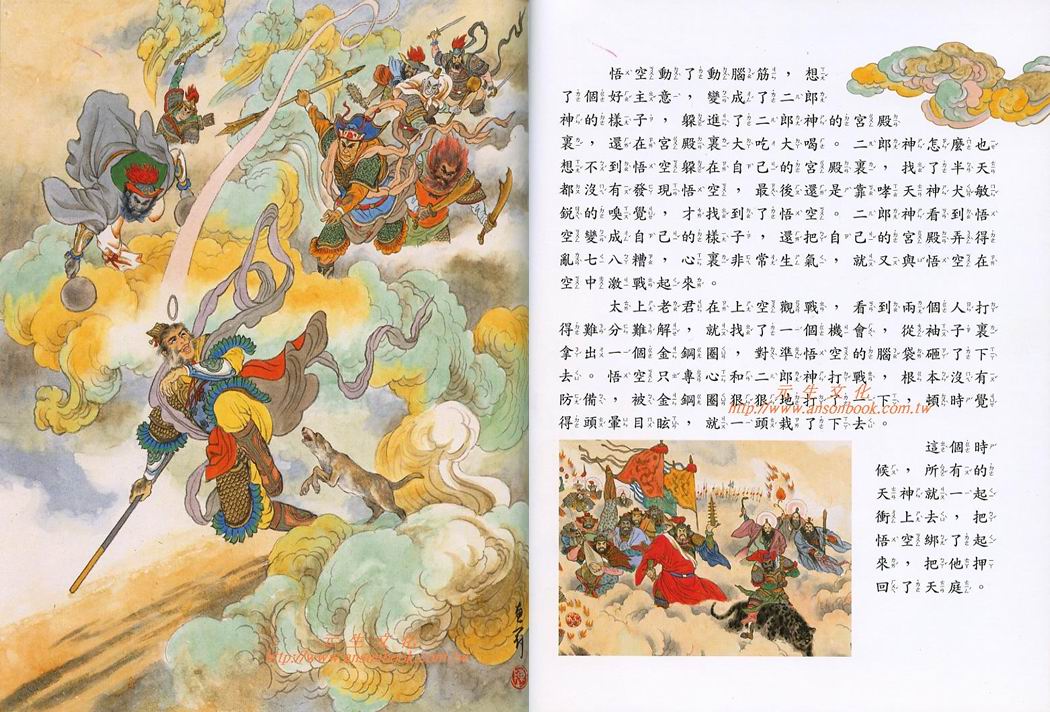 悟空動了動腦筋，想
了個好主意，變成了二郎
神的樣子，躲進了二郎神的宮殿
裏，還在宮殿裏大吃大喝。二郎神怎麼也
想不到悟空躲在自己的宮殿裏，找了半天
都沒有發現悟空，最後還是靠哮天神犬敏
銳的嗅覺，才找到了悟空。二郎神看到悟
空變成自己的樣子，還把自己的宮殿弄得
亂七八糟，心裏非常生氣，就又與悟空在
空中激戰起來。
太上老君在上空觀戰，看到兩個人打
得難分難解，就找了一個機會，從袖子裏
拿出一個金鋼圈，對準悟空的腦袋砸了下
去。悟空只專心和二郎神打戰，根本沒有
防備，被金鋼圈狠狠地打了一下，頓時覺
得頭暈目眩，就一頭栽了下去。
元生文化
http://www.ansonbook.com.tw
這個時
候，所有的
天神就一起
衝上去，把
悟空綁了起
來，把他押
回了天庭。
元生文化
http://www.ansonbook.com.tw